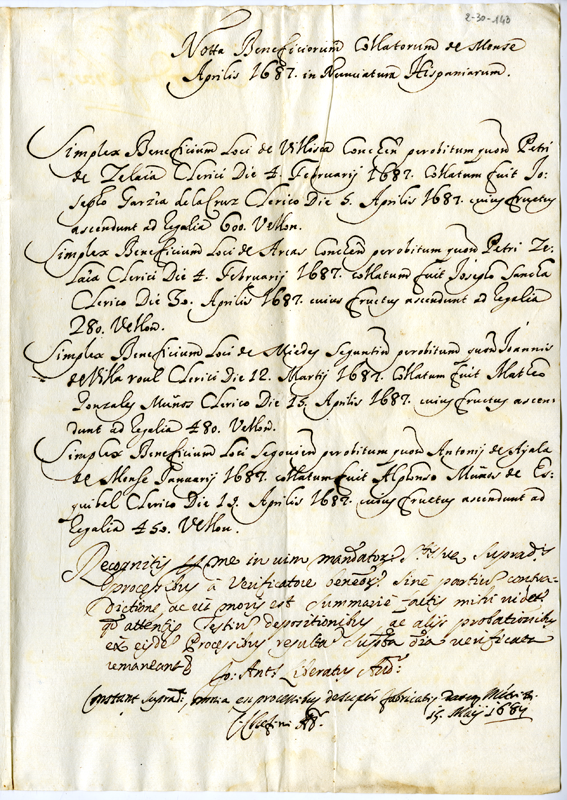 2-30-143
Notta Beneficiorum Collatorum de Mense
Aprilis 1687. in Nunciatura Hispaniarum.
Simplex Beneficium Loci de Villisca Conchen perobitum quon Petri
de Zelaia Clerici Die 4. Februarij 1687. Collatum fuit Jo-
sepho Garzia de la Cruz Clerico Die 5. Aprilis 1687. cuius fructus
ascendunt ad Regalia 600. Vellon.
Simplex Beneficium Loci de Arcas Conchen perobitum quon Petri Ze-
laia Clerici Die 4. Februarij 1687. collatum fuit Josepho Sancha
Clerico Die 30. Aprilis 1687. cuius fructus ascendunt ad Regalia
280. Vellon.
Simplex Beneficium Loci de Miedes Seguntin perobitum quon Joannis
de Villa Clerici Die 12. Martij 1687. Collatum fuit Matheo
Gonzales Muños Clerico Die 15. Aprilis 1687. cuius fructus ascen-
dunt ad Regalia 480. Vellon.
Simplex Beneficium Loci Segovien perobitum quon Antonij de Ayala
de Mense Januarij 1687. collatum fuit Alphonso Muños de Es-
quibel Clerico Die 19. Aprilis 1687. cuius fructus ascendunt ad
Regalia 450. Vellon.
Recognitis per me in vim mandator
Processibus à Verificatore sine partium contra-
dictione, ac uti moris est summarie factis mihi videt
attentis Testium depositionibus ac aliis probationibus
ex Processibus verificata
remaneant
Jo: Ant: Liberatus Aud:
Constant omnia ex processibus desuper fabricatis
15. Maij 1687